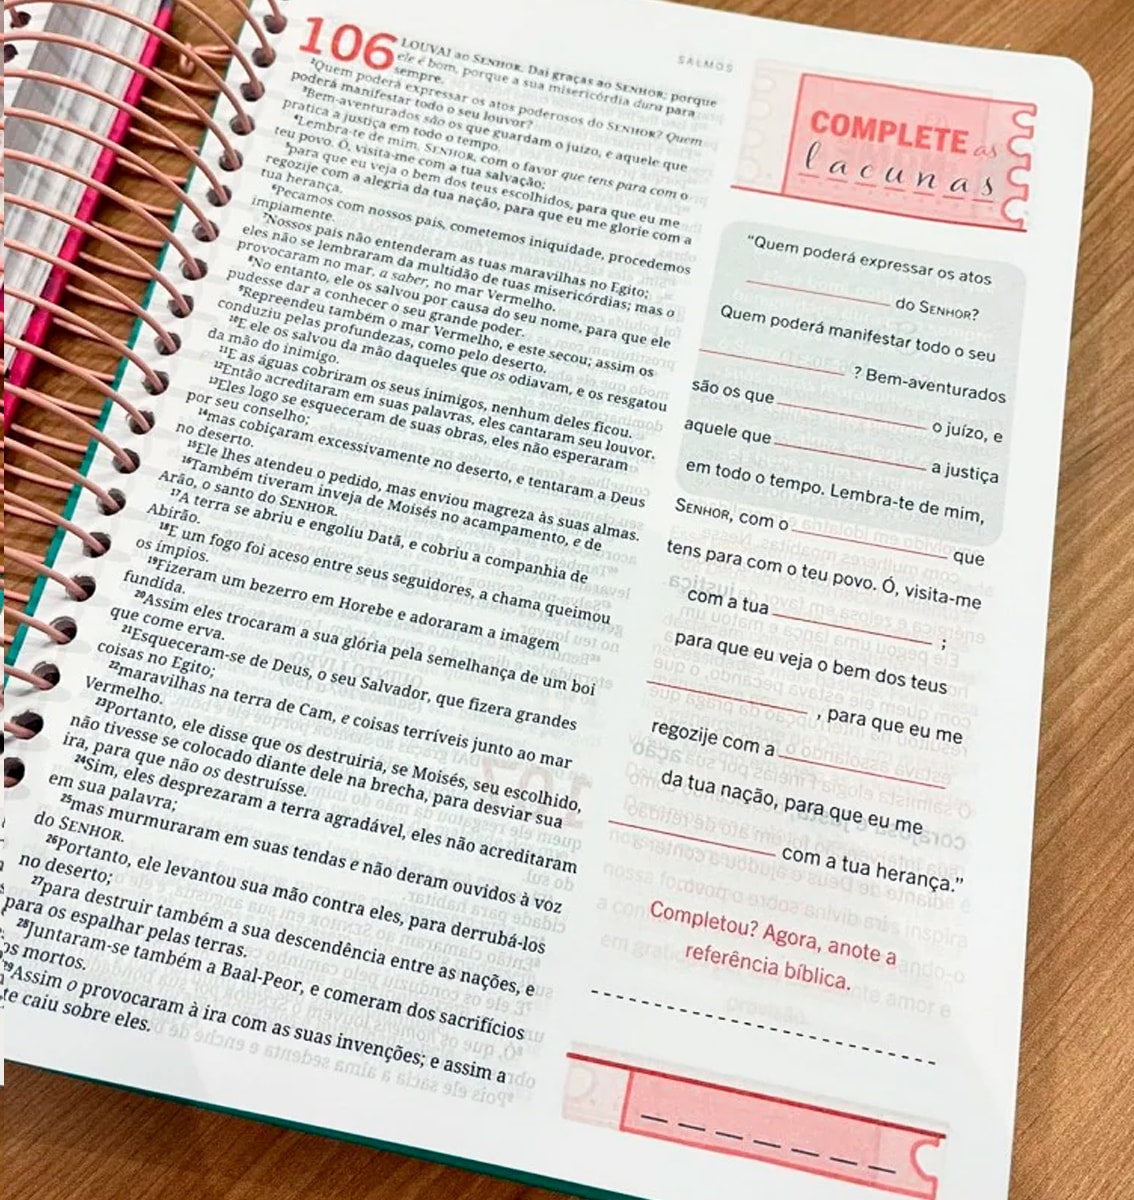 SALMOS
106 LOUVAI ao SENHOR. Dai graças ao SENHOR; porque
ele é bom, porque a sua misericórdia dura para
sempre.
²Quem poderá expressar os atos poderosos do SENHOR? Quem
poderá manifestar todo o seu louvor?
³Bem-aventurados são os que guardam o juízo, e aquele que
pratica a justiça em todo o tempo.
⁴Lembra-te de mim, SENHOR, com o favor que tens para com o
teu povo. Ó, visita-me com a tua salvação;
⁵para que eu veja o bem dos teus escolhidos, para que eu me
regozije com a alegria da tua nação, para que eu me glorie com a
tua herança.
⁶Pecamos com nossos pais, cometemos iniquidade, procedemos
impiamente.
⁷Nossos pais não entenderam as tuas maravilhas no Egito;
eles não se lembraram da multidão de tuas misericórdias; mas o
provocaram no mar, a saber, no mar Vermelho.
⁸No entanto, ele os salvou por causa do seu nome, para que ele
pudesse dar a conhecer o seu grande poder.
⁹Repreendeu também o mar Vermelho, e este secou; assim os
conduziu pelas profundezas, como pelo deserto.
¹⁰E ele os salvou da mão daqueles que os odiavam, e os resgatou
da mão do inimigo.
¹¹E as águas cobriram os seus inimigos, nenhum deles ficou.
¹²Então acreditaram em suas palavras, eles cantaram seu louvor.
¹³Eles logo se esqueceram de suas obras, eles não esperaram
por seu conselho;
¹⁴mas cobiçaram excessivamente no deserto, e tentaram a Deus
no deserto.
¹⁵Ele lhes atendeu o pedido, mas enviou magreza às suas almas.
¹⁶Também tiveram inveja de Moisés no acampamento, e de
Arão, o santo do SENHOR.
¹⁷A terra se abriu e engoliu Datã, e cobriu a companhia de
Abirão.
¹⁸E um fogo foi aceso entre seus seguidores, a chama queimou
os ímpios.
¹⁹Fizeram um bezerro em Horebe e adoraram a imagem
fundida.
²⁰Assim eles trocaram a sua glória pela semelhança de um boi
que come erva.
²¹Esqueceram-se de Deus, o seu Salvador, que fizera grandes
coisas no Egito;
²²maravilhas na terra de Cam, e coisas terríveis junto ao mar
Vermelho.
²³Portanto, ele disse que os destruiria, se Moisés, seu escolhido,
não tivesse se colocado diante dele na brecha, para desviar sua
ira, para que não os destruísse.
²⁴Sim, eles desprezaram a terra agradável, eles não acreditaram
em sua palavra;
²⁵mas murmuraram em suas tendas e não deram ouvidos à voz
do SENHOR.
²⁶Portanto, ele levantou sua mão contra eles, para derrubá-los
no deserto;
²⁷para destruir também a sua descendência entre as nações, e
para os espalhar pelas terras.
²⁸Juntaram-se também a Baal-Peor, e comeram dos sacrifícios
os mortos.
²⁹Assim o provocaram à ira com as suas invenções; e assim a
te caiu sobre eles.
COMPLETE as
lacunas
“Quem poderá expressar os atos
____ do SENHOR?
Quem poderá manifestar todo o seu
____ ? Bem-aventurados
são os que ____ o juízo, e
aquele que ____ a justiça
em todo o tempo. Lembra-te de mim,
SENHOR, com o ____ que
tens para com o teu povo. Ó, visita-me
com a tua ____ ;
para que eu veja o bem dos teus
____ , para que eu me
regozije com a ____
da tua nação, para que eu me
____ com a tua herança.”
Completou? Agora, anote a
referência bíblica.